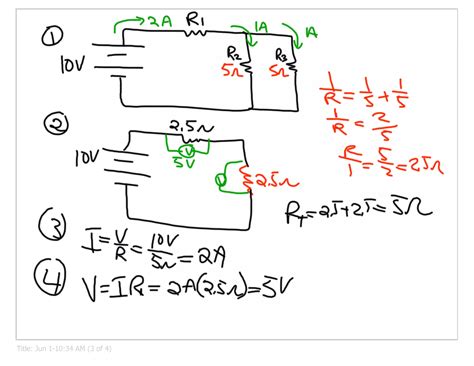 ① 2A R1 1A 1A
10V R2 R3
5Ω 5Ω
1/R = 1/5 + 1/5
1/R = 2/5
R/1 = 5/2 = 2.5Ω
② 2.5Ω
10V V
5V
V 2.5Ω
RT = 2.5+2.5 = 5Ω
③ I = V/R = 10V/5Ω = 2A
④ V = IR1 = 2A(2.5Ω) = 5V
Title: Jun 1-10:34 AM (3 of 4)